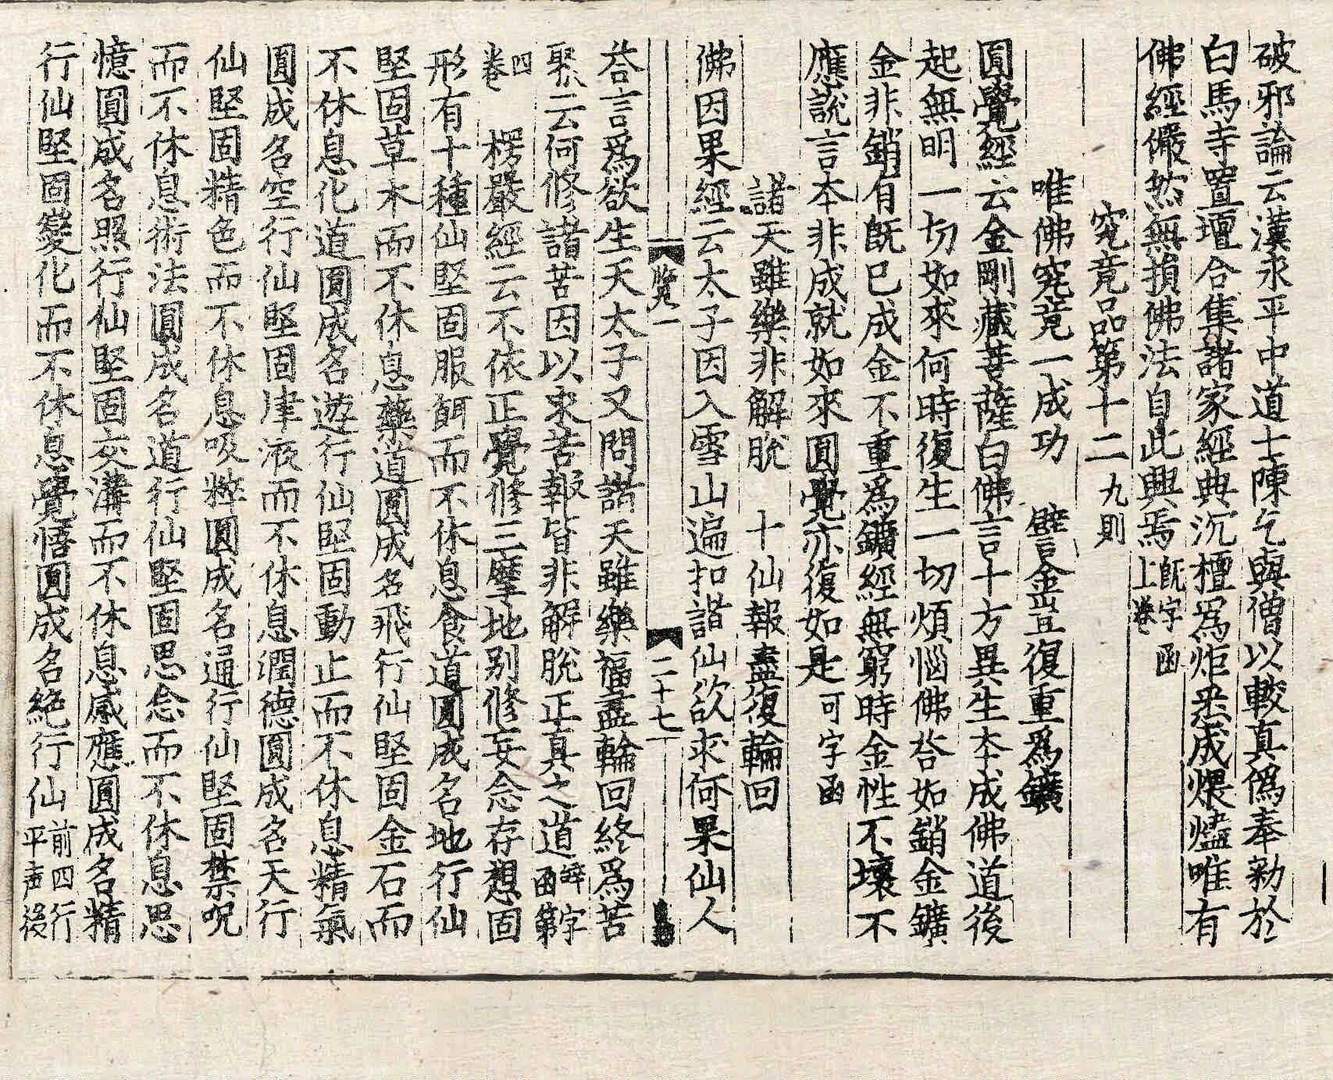 破邪論云漢永平中道士陳乞與僧以較真僞奉勑於
白馬寺置壇合集諸家經典沉檀爲炬悉成煨燼唯有
佛經儼然無損佛法自此興焉旣字函上卷
究竟品第十二九則
唯佛究竟一成功　譬金豈復重爲鑛
圓覺經云金剛藏菩薩白佛言十方異生本成佛道後
起無明一切如來何時復生一切煩惱佛荅如銷金鑛
金非銷有旣已成金不重爲鑛經無窮時金性不壞不
應說言本非成就如來圓覺亦復如是可字函
諸天雖樂非解脫　十仙報盡復輪回
佛因果經云太子因入雪山遍扣諸仙欲求何果仙人
覽一　二十七
荅言爲欲生天太子又問諸天雖樂福盡輪回終爲苦
聚云何修諸苦因以求苦報皆非解脫正真之道辝字函第
四卷　楞嚴經云不依正覺修三摩地别修妄念存想固
形有十種仙堅固服餌而不休息食道圓成名地行仙
堅固草木而不休息藥道圓成名飛行仙堅固金石而
不休息化道圓成名遊行仙堅固動止而不休息精氣
圓成名空行仙堅固津液而不休息潤德圓成名天行
仙堅固精色而不休息吸粹圓成名通行仙堅固禁呪
而不休息術法圓成名道行仙堅固思念而不休息思
憶圓成名照行仙堅固交溝而不休息感應圓成名精
行仙堅固變化而不休息覺悟圓成名絶行仙前四行平声後